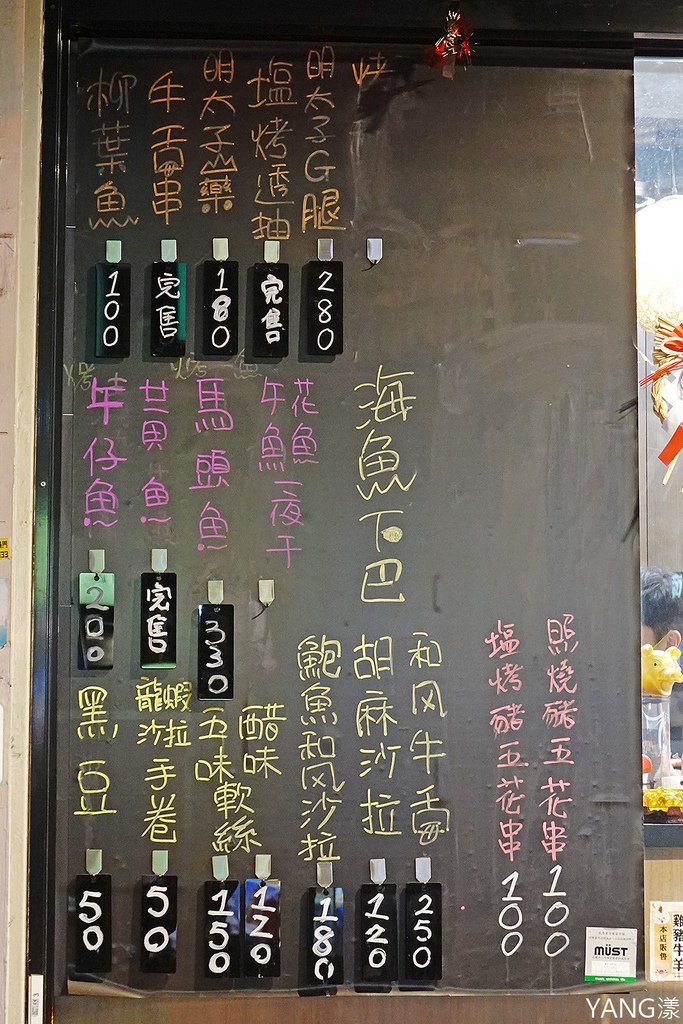 烤
明太子G腿
280
塩烤透抽
完售
明太子山藥
180
牛舌串
完售
柳葉魚
100
海魚下巴
花魚
午魚一夜干
馬頭魚
330
完售
午仔魚
200
照燒豬五花串
100
塩烤豬五花串
100
和风牛舌
250
胡麻沙拉
120
鮑魚和风沙拉
180
醋味
120
五味軟絲
150
龍蝦
沙拉
手卷
50
黑豆
50
MÜST
雞豬牛羊
本店販售
YANG漾